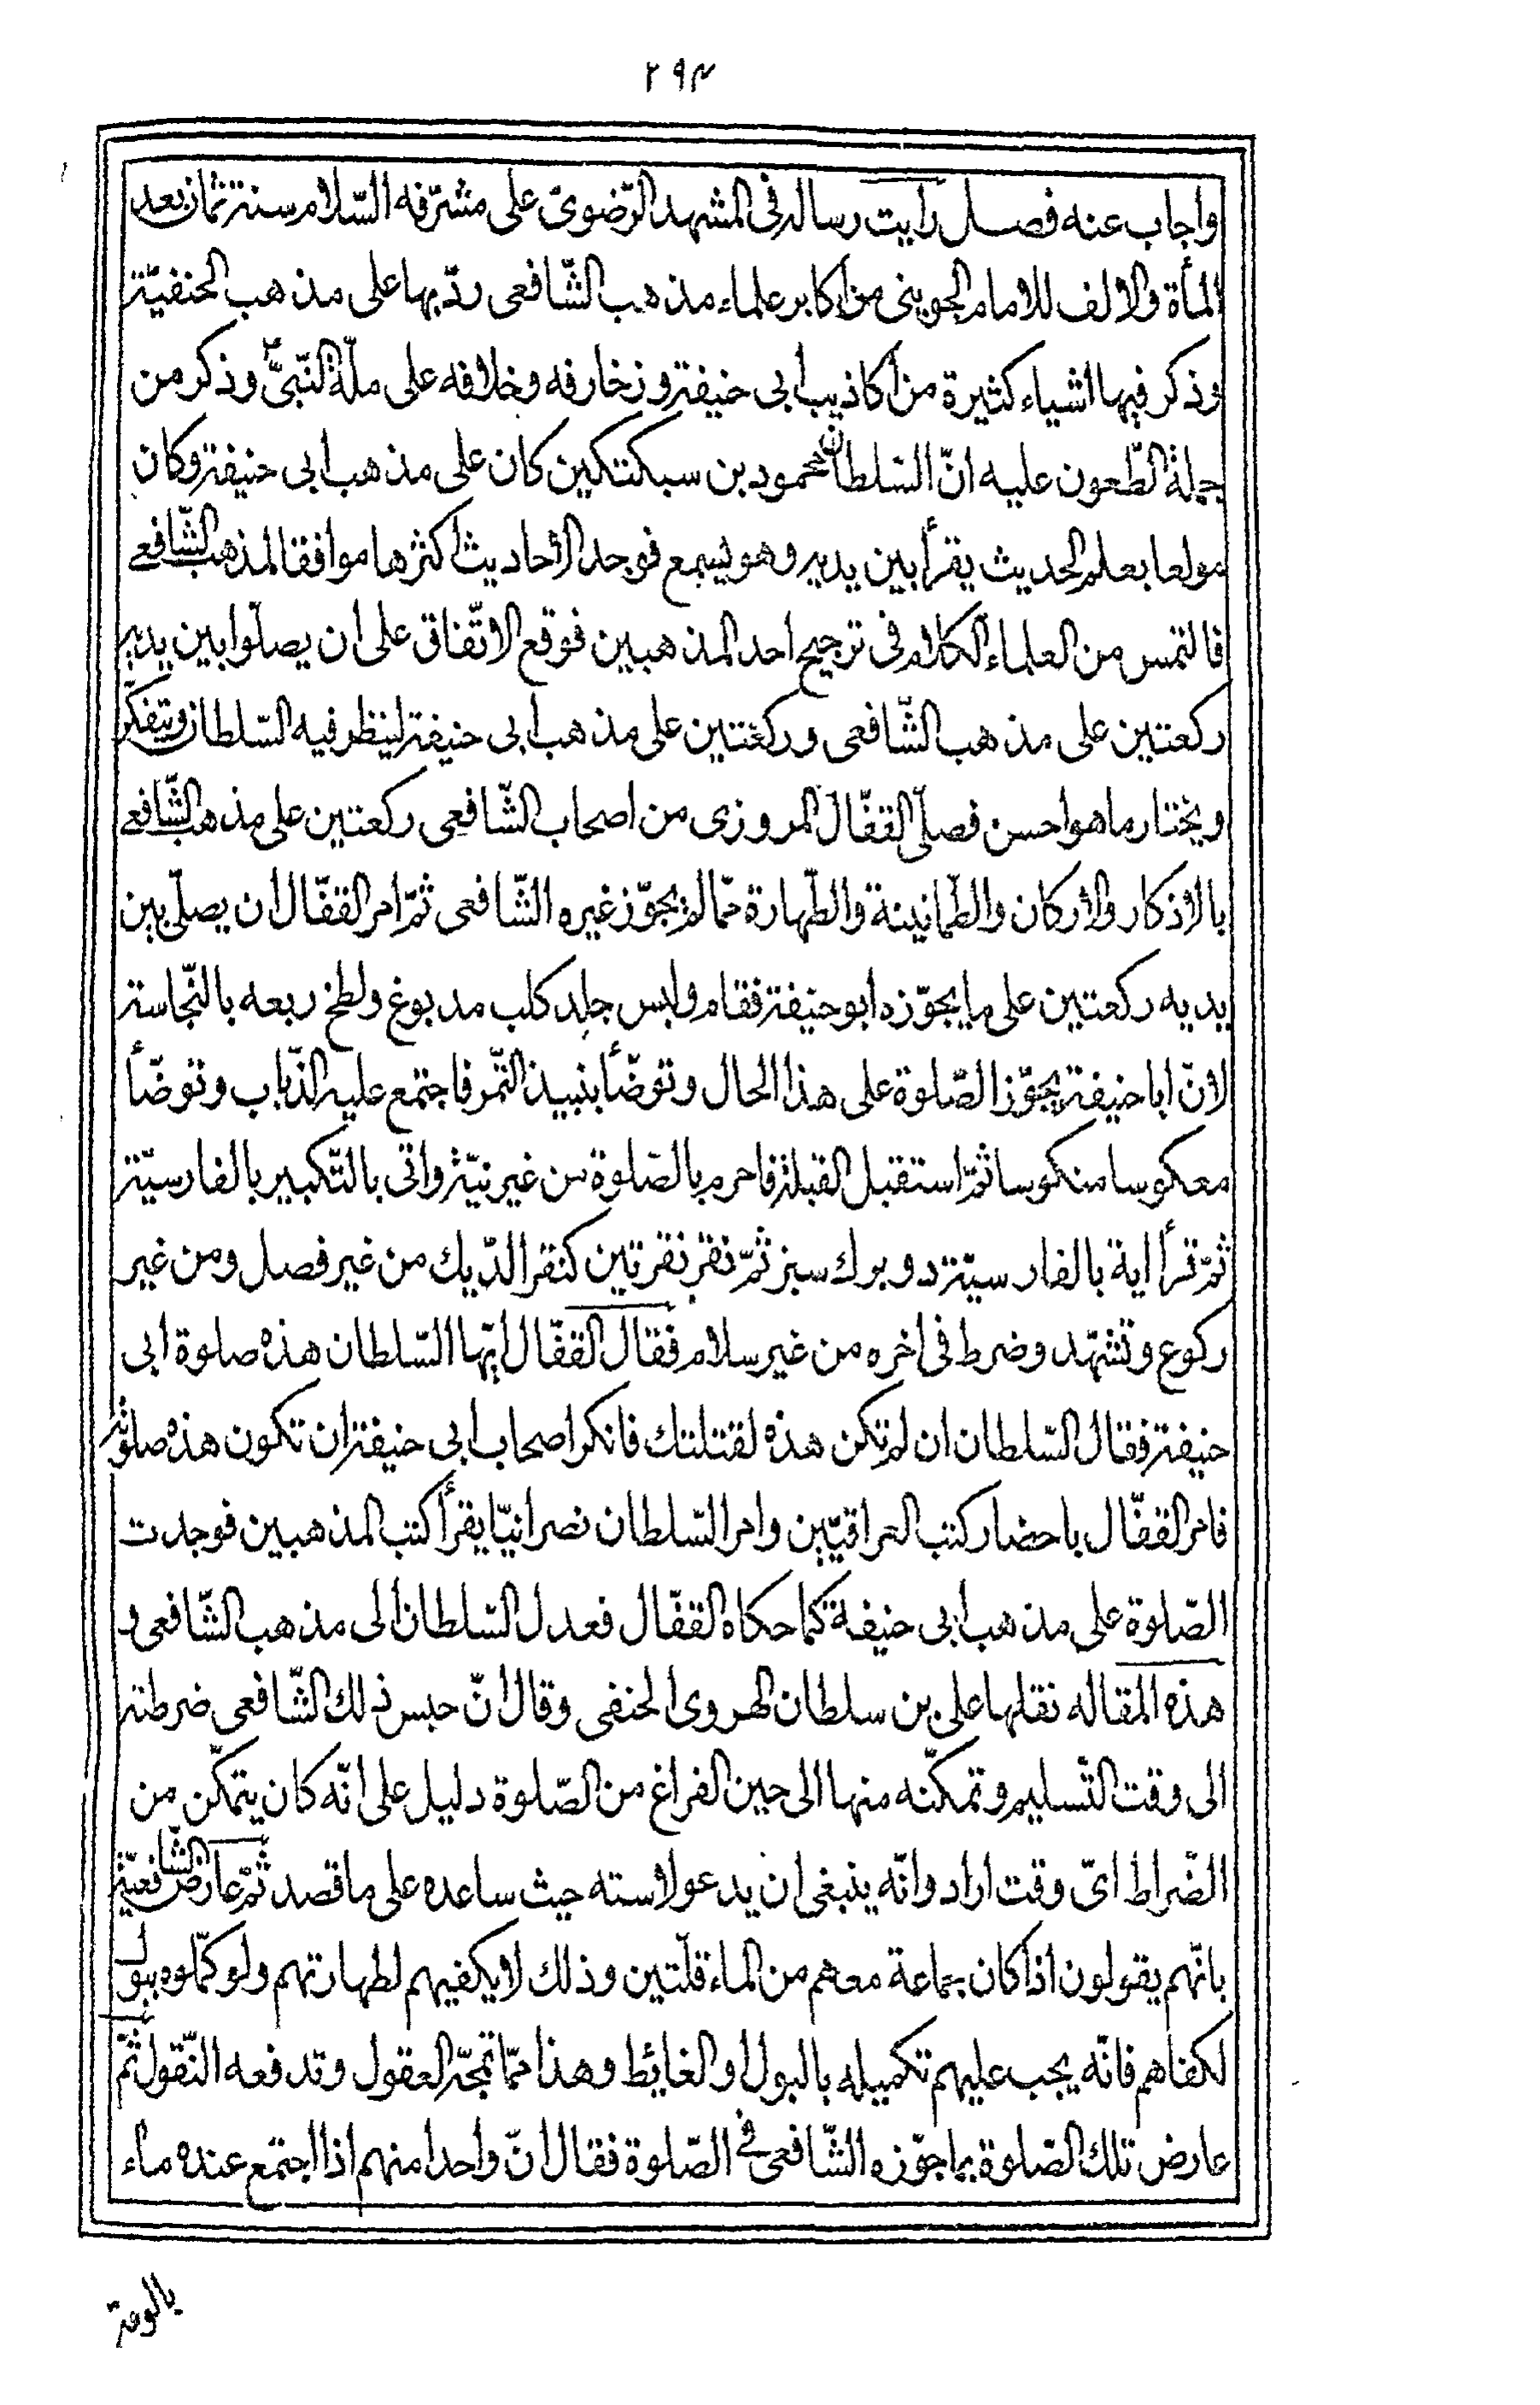 ٢٩٣
واجاب عنه فصل رايت رسالة فى المشهد الرّضوىّ على مشرّفه السّلام سنة ثمان بعد
المأة والالف للامام الجوينى من اكابر علماء مذهب الشّافعى ردّ بها على مذهب الحنفيّة
وذكر فيها اشياء كثيرة من اكاذيب ابى حنيفة وزخارفه وخلافه على ملّة النّبىّ وذكر من
جملة الطّعون عليه انّ السّلطان محمود بن سبكتكين كان على مذهب ابى حنيفة وكان
مولعا بعلم الحديث يقرأ بين يديه وهو يسمع فوجد الأحاديث اكثرها موافقا لمذهب الشّافعى
فالتمس من العلماء الكلام فى ترجيح احد المذهبين فوقع الاتّفاق على ان يصلّوا بين يديه
ركعتين على مذهب الشّافعى وركعتين على مذهب ابى حنيفة لينظر فيه السّلطان ويتفكّر
ويختار ما هو احسن فصلّى القفّال المروزى من اصحاب الشّافعى ركعتين على مذهب الشّافعى
بالاذكار والاركان والطّمانينة والطّهارة ممّا لم يجوّز غيره الشّافعى ثمّ امر القفّال ان يصلّى بين
يديه ركعتين على ما يجوّزه ابو حنيفة فقام ولبس جلد كلب مدبوغ ولطخ ربعه بالنّجاسة
لانّ ابا حنيفة يجوّز الصّلوة على هذا الحال وتوضّأ بنبيذ التّمر فاجتمع عليه الذّباب وتوضّأ
معكوسا منكوسا ثمّ استقبل القبلة فاحرم بالصّلوة من غير نيّة واتى بالتّكبير بالفارسيّة
ثمّ قرأ اية بالفارسيّة دو برك سبز ثمّ نقر نقرتين كنقر الدّيك من غير فصل ومن غير
ركوع وتشهّد وضرط فى اخره من غير سلام فقال القفّال ايّها السّلطان هذه صلوة ابى
حنيفة فقال السّلطان ان لم تكن هذه لقتلتك فانكر اصحاب ابى حنيفة ان تكون هذه صلوته
فامر القفّال باحضار كتب العراقيّين وامر السّلطان نصرانيّا يقرأ كتب المذهبين فوجدت
الصّلوة على مذهب ابى حنيفة كما حكاه القفّال فعدل السّلطان الى مذهب الشّافعى و
هذه المقاله نقلها على بن سلطان الهروى الحنفى وقال انّ حبس ذلك الشّافعى ضرطته
الى وقت التّسليم وتمكّنه منها الى حين الفراغ من الصّلوة دليل على انّه كان يتمكّن من
الضّراط اىّ وقت اراد وانّه ينبغى ان يدعو لاسته حيث ساعده على ما قصد ثمّ عارض الشّافعيّة
بانّهم يقولون اذا كان جماعة معهم من الماء قلّتين وذلك لا يكفيهم لطهارتهم ولو كمّلوه ببول
لكفاهم فانّه يجب عليهم تكميله بالبول او الغايط وهذا ممّا تمجّه العقول وتدفعه النّقول ثمّ
عارض تلك الصّلوة بما جوّزه الشّافعى فى الصّلوة فقال انّ واحدا منهم اذا اجتمع عنده ماء